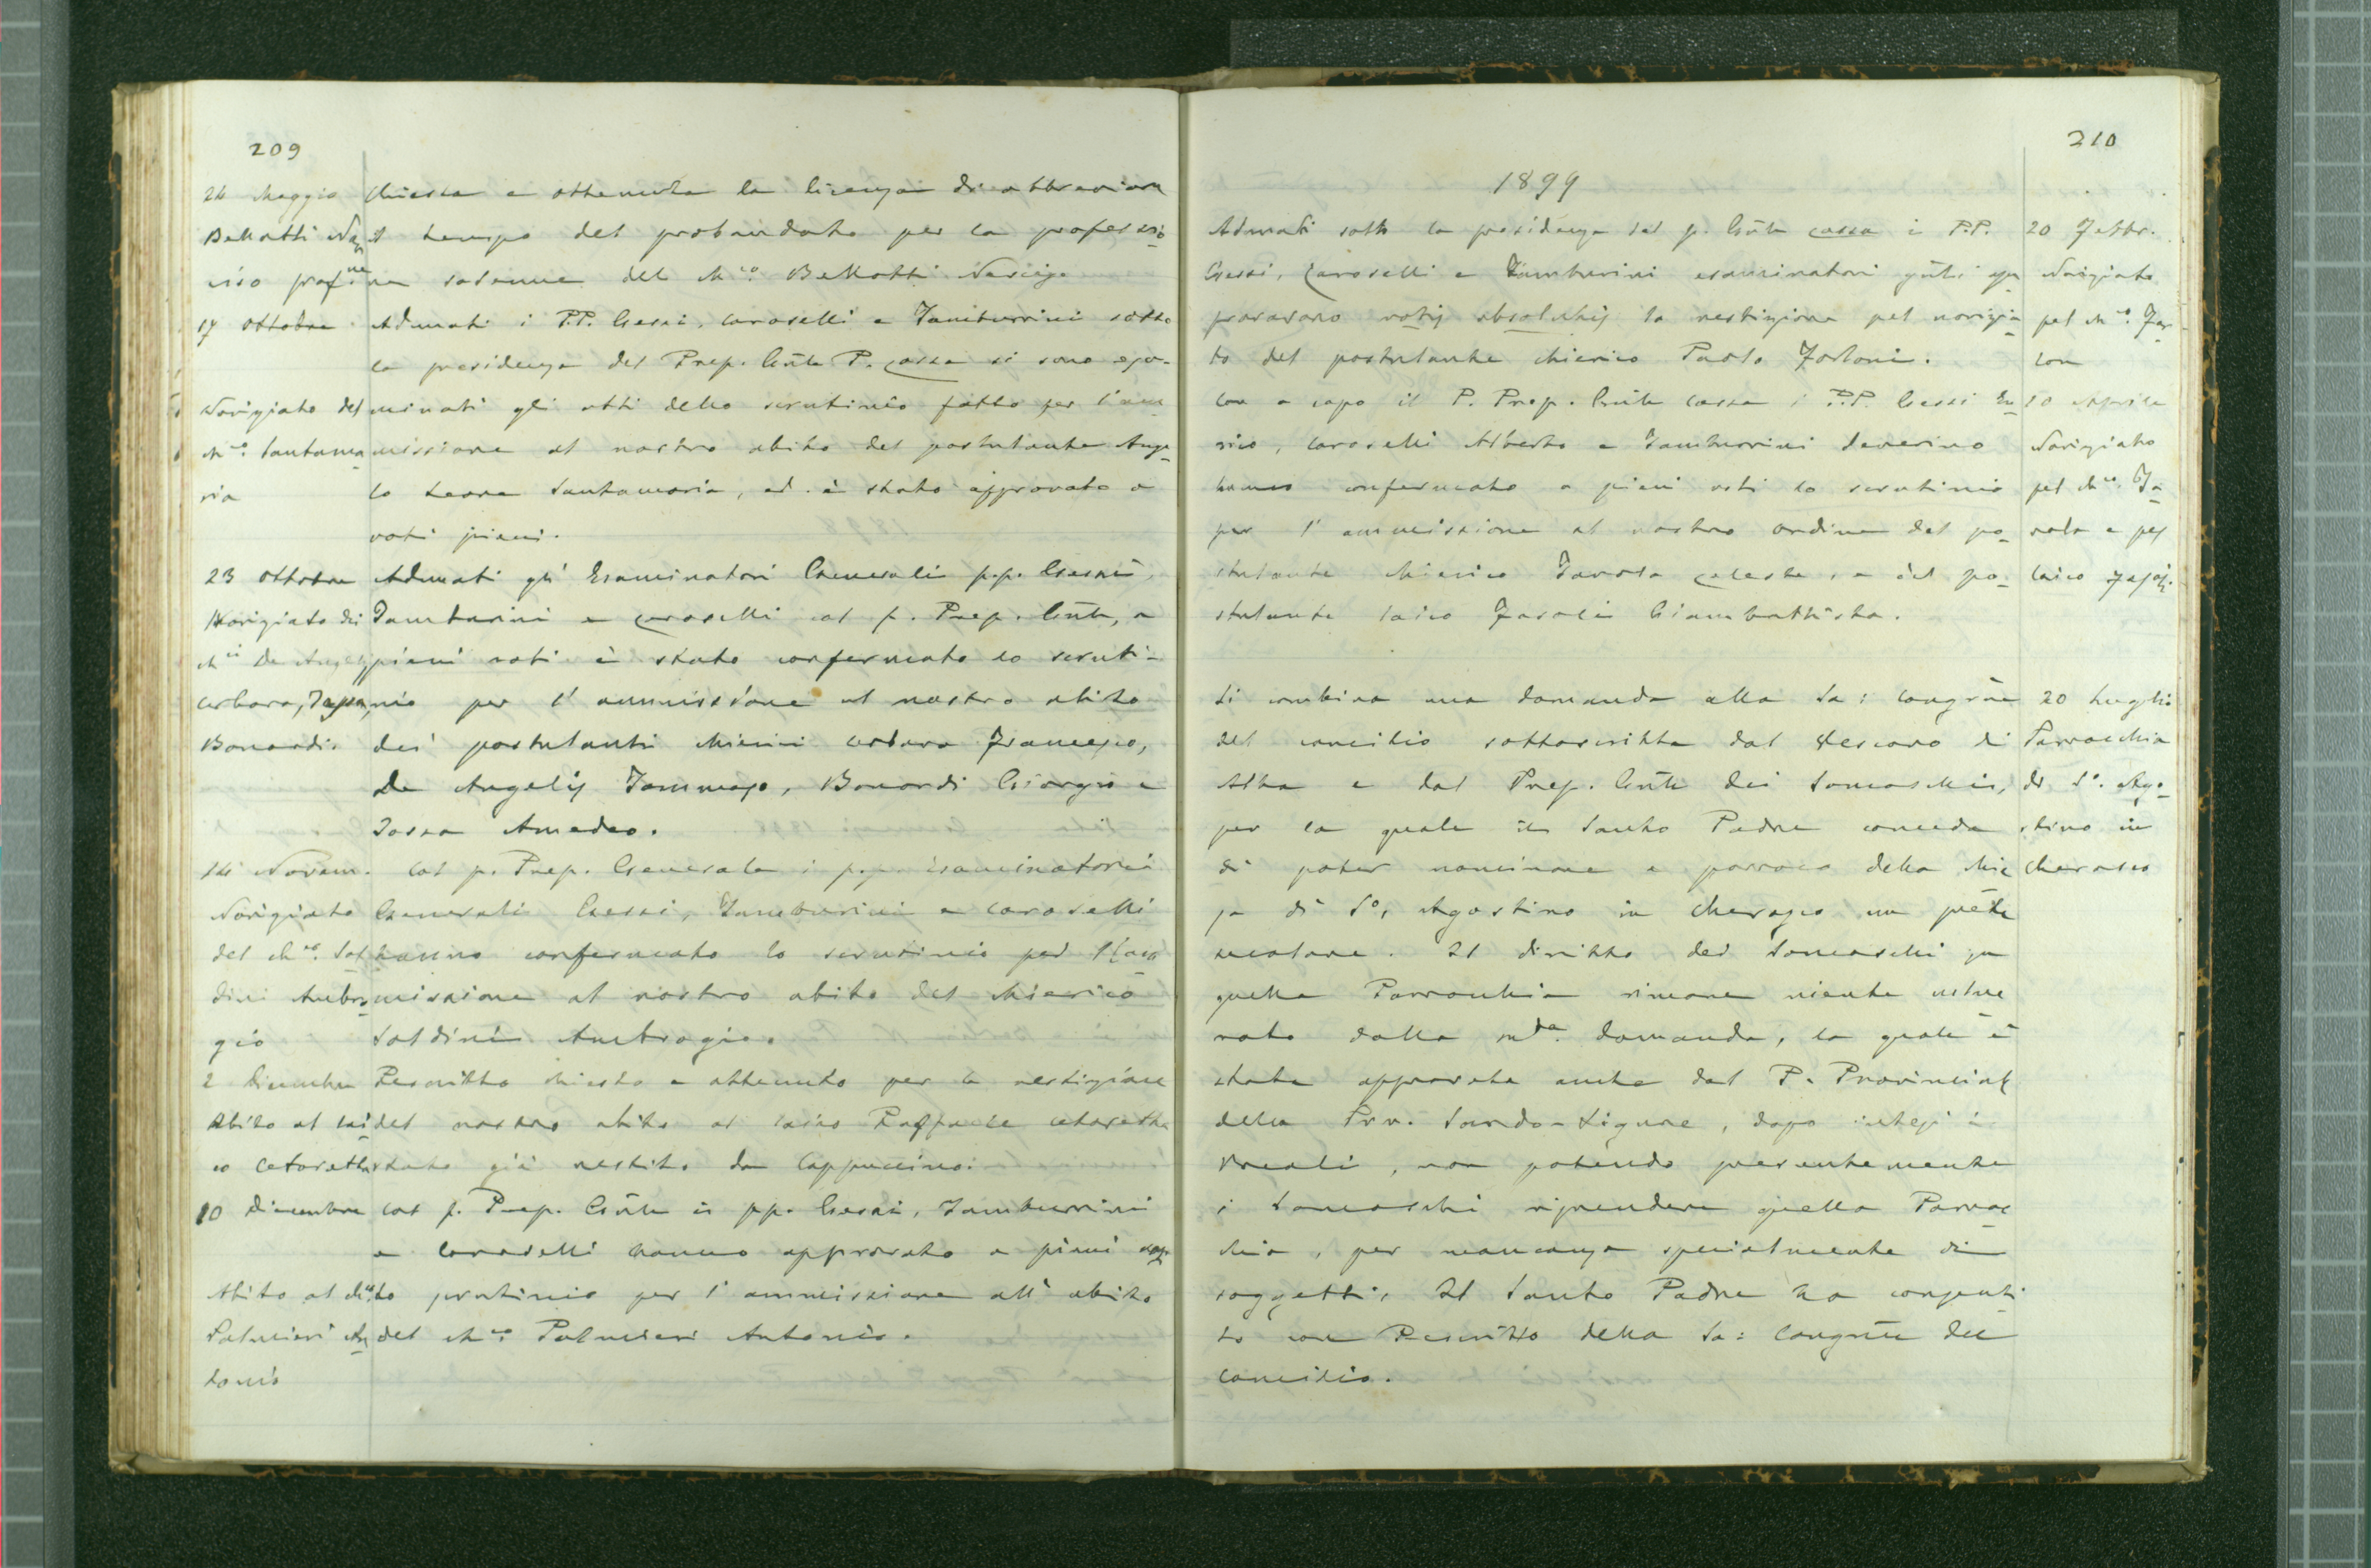 209
24 Maggio
Bellotti Nar
ciso prof.ne
chiesta e ottenuta la licenza di abbreviare
il tempo del probandato per la professio
ne solenne del Ch.co Bellotti Narciso
17 Ottobre
Noviziato del
Ch.co Santama
ria
Adunati i P.P. Gessi, Caroselli e Tamburrini sotto
la presidenza del Prep. Gnle P. Cossa si sono esa-
minati gli atti dello scrutinio fatto per l'am
missione al nostro abito del postulante Ange
lo Leone Santamaria, ed è stato approvato a
voti pieni.
23 Ottobre
Noviziato dei
Ch.ci De Angelis
Cerbara,
Bonardi.
Adunati gli Esaminatori Generali p.p. Gessi,
Tamburini e Caroselli col p. Prep. Gnle, a
pieni voti è stato confermato lo scruti-
nio per l'ammissione al nostro abito
dei postulanti chierici Cerbara Francesco,
De Angelis Tommaso, Bonardi Giorgio e
Amedeo.
14 Novem.
Noviziato
del Ch.co Sol
dini Ambro
gio
Col p. Prep. Generale i p.p. Esaminatori
Generali Gessi, Tamburini e Caroselli
hanno confermato lo scrutinio per l'am
missione al nostro abito del chierico
Soldini Ambrogio.
2 Dicembre
Abito al lai
co Cetoretta
Rescritto chiesto e ottenuto per la vestizione
del nostro abito al laico Raffaele Cetoretta
stato già vestito da Cappuccino.
10 Dicembre
Abito al Ch.co
Palmieri An
tonio
Col p. Prep. Gnle i pp. Gessi, Tamburrini
e Caroselli hanno approvato a pieni voti
lo scrutinio per l'ammissione all'abito
del Ch.co Palmieri Antonio.
210
1899
Adunati sotto la presidenza del p. Gnle Cossa i P.P.
Gessi, Caroselli e Tamburini esaminatori gnli ap
provarono votis absolutis la vestizione pel novizia
to del postulante chierico Paolo Forloni.
20 Febbr.
Noviziato
pel Ch.co For
loni
Con a capo il P. Prep. Gnle Cossa i P.P. Gessi En
rico, Caroselli Alberto e Tamburrini Severino
hanno confermato a pieni voti lo scrutinio
per l'ammissione al nostro ordine del po
stulante chierico Tarola Celeste, e del po-
stulante laico Fasoli Giambattista.
10 Aprile
Noviziato
pel Ch.co Ta
rola e pel
laico Fasoli.
Si combina una domanda alla Sa: Congrne
del Concilio sottoscritta dal Vescovo di
Alba e dal Prep. Gnle dei Somaschi,
per la quale il Santo Padre conceda
di poter nominare a parroco della Chie
sa di S.o Agostino in Cherasco un prete
secolare. Il diritto dei Somaschi su
quella Parrocchia rimane niente
dalla sud.ta domanda, la quale è
stata approvata anche dal P. Provinciale
della Prov. Sardo-Ligure, dopo intesi i
Vocali, non potendo presentemente
i Somaschi riprendere quella Parroc
chia, per mancanza specialmente di
soggetti. Il Santo Padre ha consenti
to con Rescritto della Sa: Congrne del
Concilio.
20 Luglio
Parrocchia
di S.o Ago
stino in
Cherasco